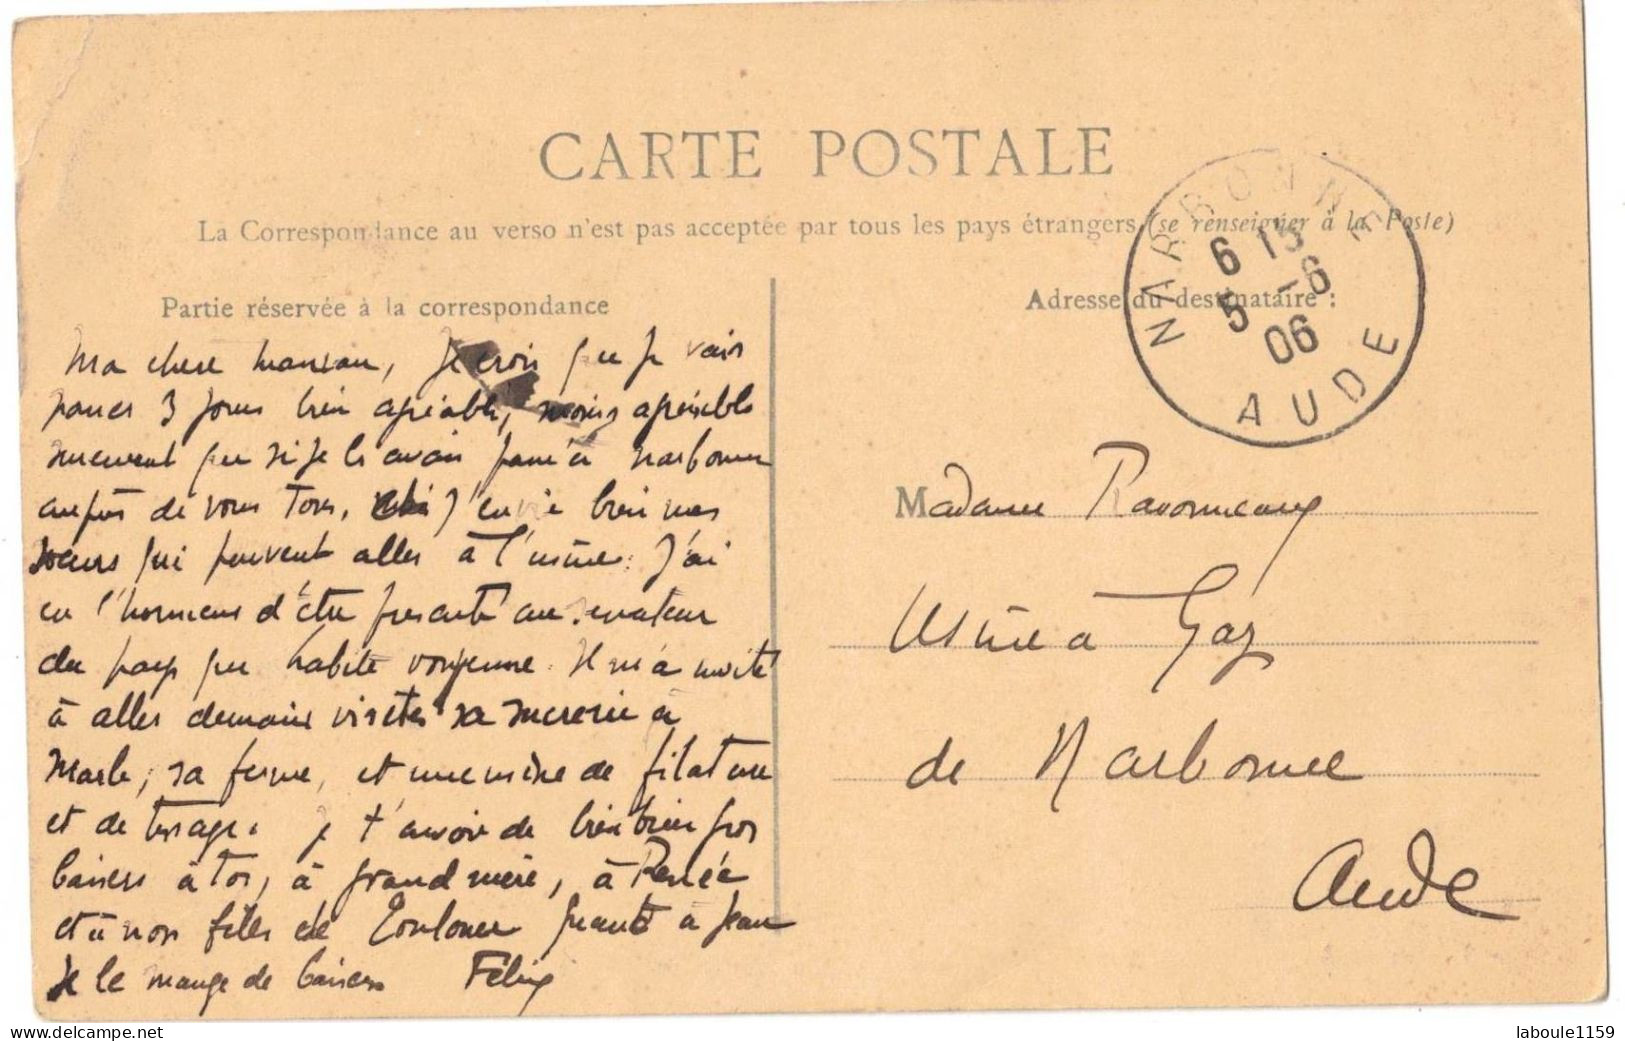 CARTE POSTALE
La Correspondance au verso n'est pas acceptée par tous les pays étrangers (se renseigner à la Poste)
Partie réservée à la correspondance
Adresse du destinataire :
NARBONNE
6 15
5 -6
06
AUDE
Ma chere maman, Je crois que je vais
passer 3 jours bien agréables, moins agréable
surement que si je les avais passé à Narbonne
auprès de vous tous, J'envie bien mes
soeurs qui peuvent aller à l'usine. J'ai
eu l'honneur d'être présenté au senateur
du pays qui habite Il m'a invité
à aller demain visiter sa sucrerie à
Marle, sa ferme, et une usine de filature
et de tissage. Je t'envoie de bien bien gros
baisers à toi, à grand mère, à Renée
et à nos filles de Toulouse quant à Jean
Je le mange de baisers Félix
Madame
Usine à Gaz
de Narbonne
Aude
laboule1159